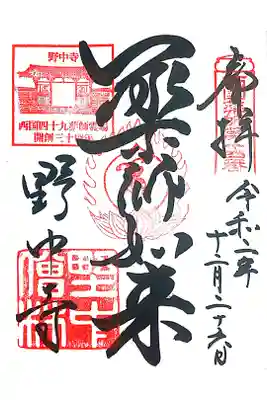 奉拝
令和二年
十二月二十六日
薬師如来
野中寺
野中寺
西国四十九薬師霊場
開創三十周年